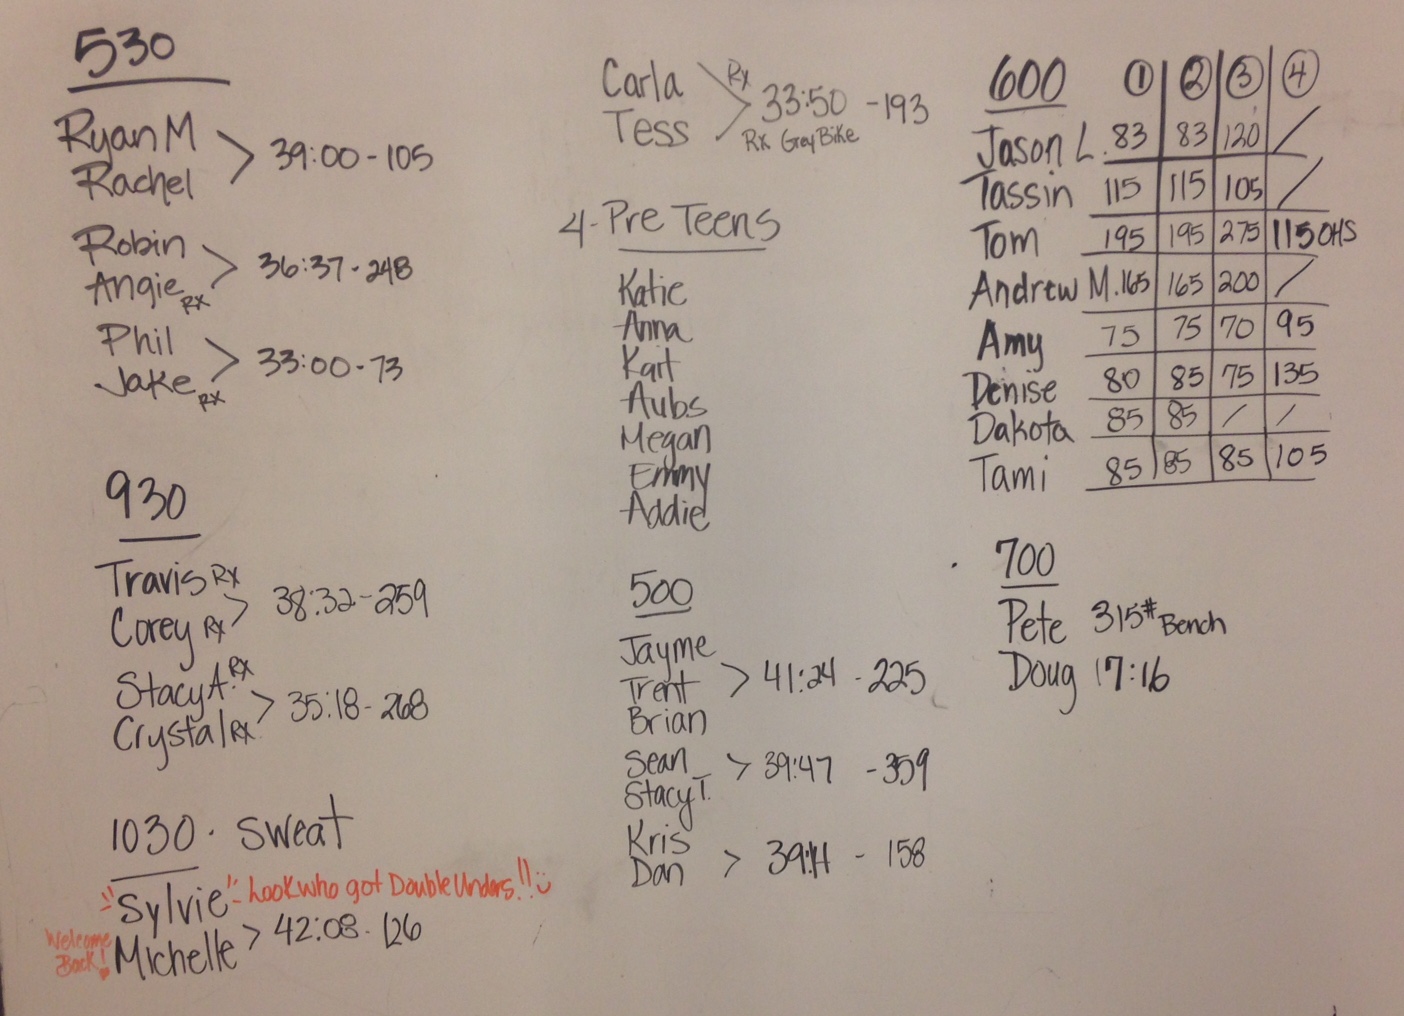 530
Ryan M
Rachel
39:00 - 105
Robin
Angie RX
36:37 - 248
Phil
Jake RX
33:00 - 73
930
Travis RX
Corey RX
38:32 - 259
Stacy A. RX
Crystal RX
35:18 - 268
1030 · Sweat
"Sylvie" Look who got Double Unders!!
Welcome Back!
Michelle
42:08 - 126
Carla
Tess
Rx
33:50 - 193
Rx Grey Bike
4 - Pre Teens
Katie
Anna
Kait
Aubs
Megan
Emmy
Addie
500
Jayme
Trent
Brian
41:24 - 225
Sean
Stacy T.
39:47 - 359
Kris
Dan
39:11 - 158
600 1 2 3 4
Jason L. 83 83 120 /
Tassin 115 115 105 /
Tom 195 195 275 115 OHS
Andrew M. 165 165 200 /
Amy 75 75 70 95
Denise 80 85 75 135
Dakota 85 85 / /
Tami 85 85 85 105
700
Pete 315# Bench
Doug 17:16